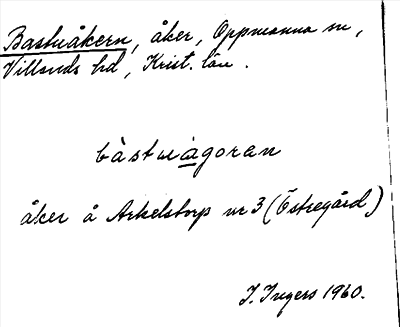 Bastuåkern, åker, Oppmanna sn,
Villands hd, Krist. län.
bàstuågoran
åker å Arkelstorp nr 3 (Östregård)
I. Ingers 1960.